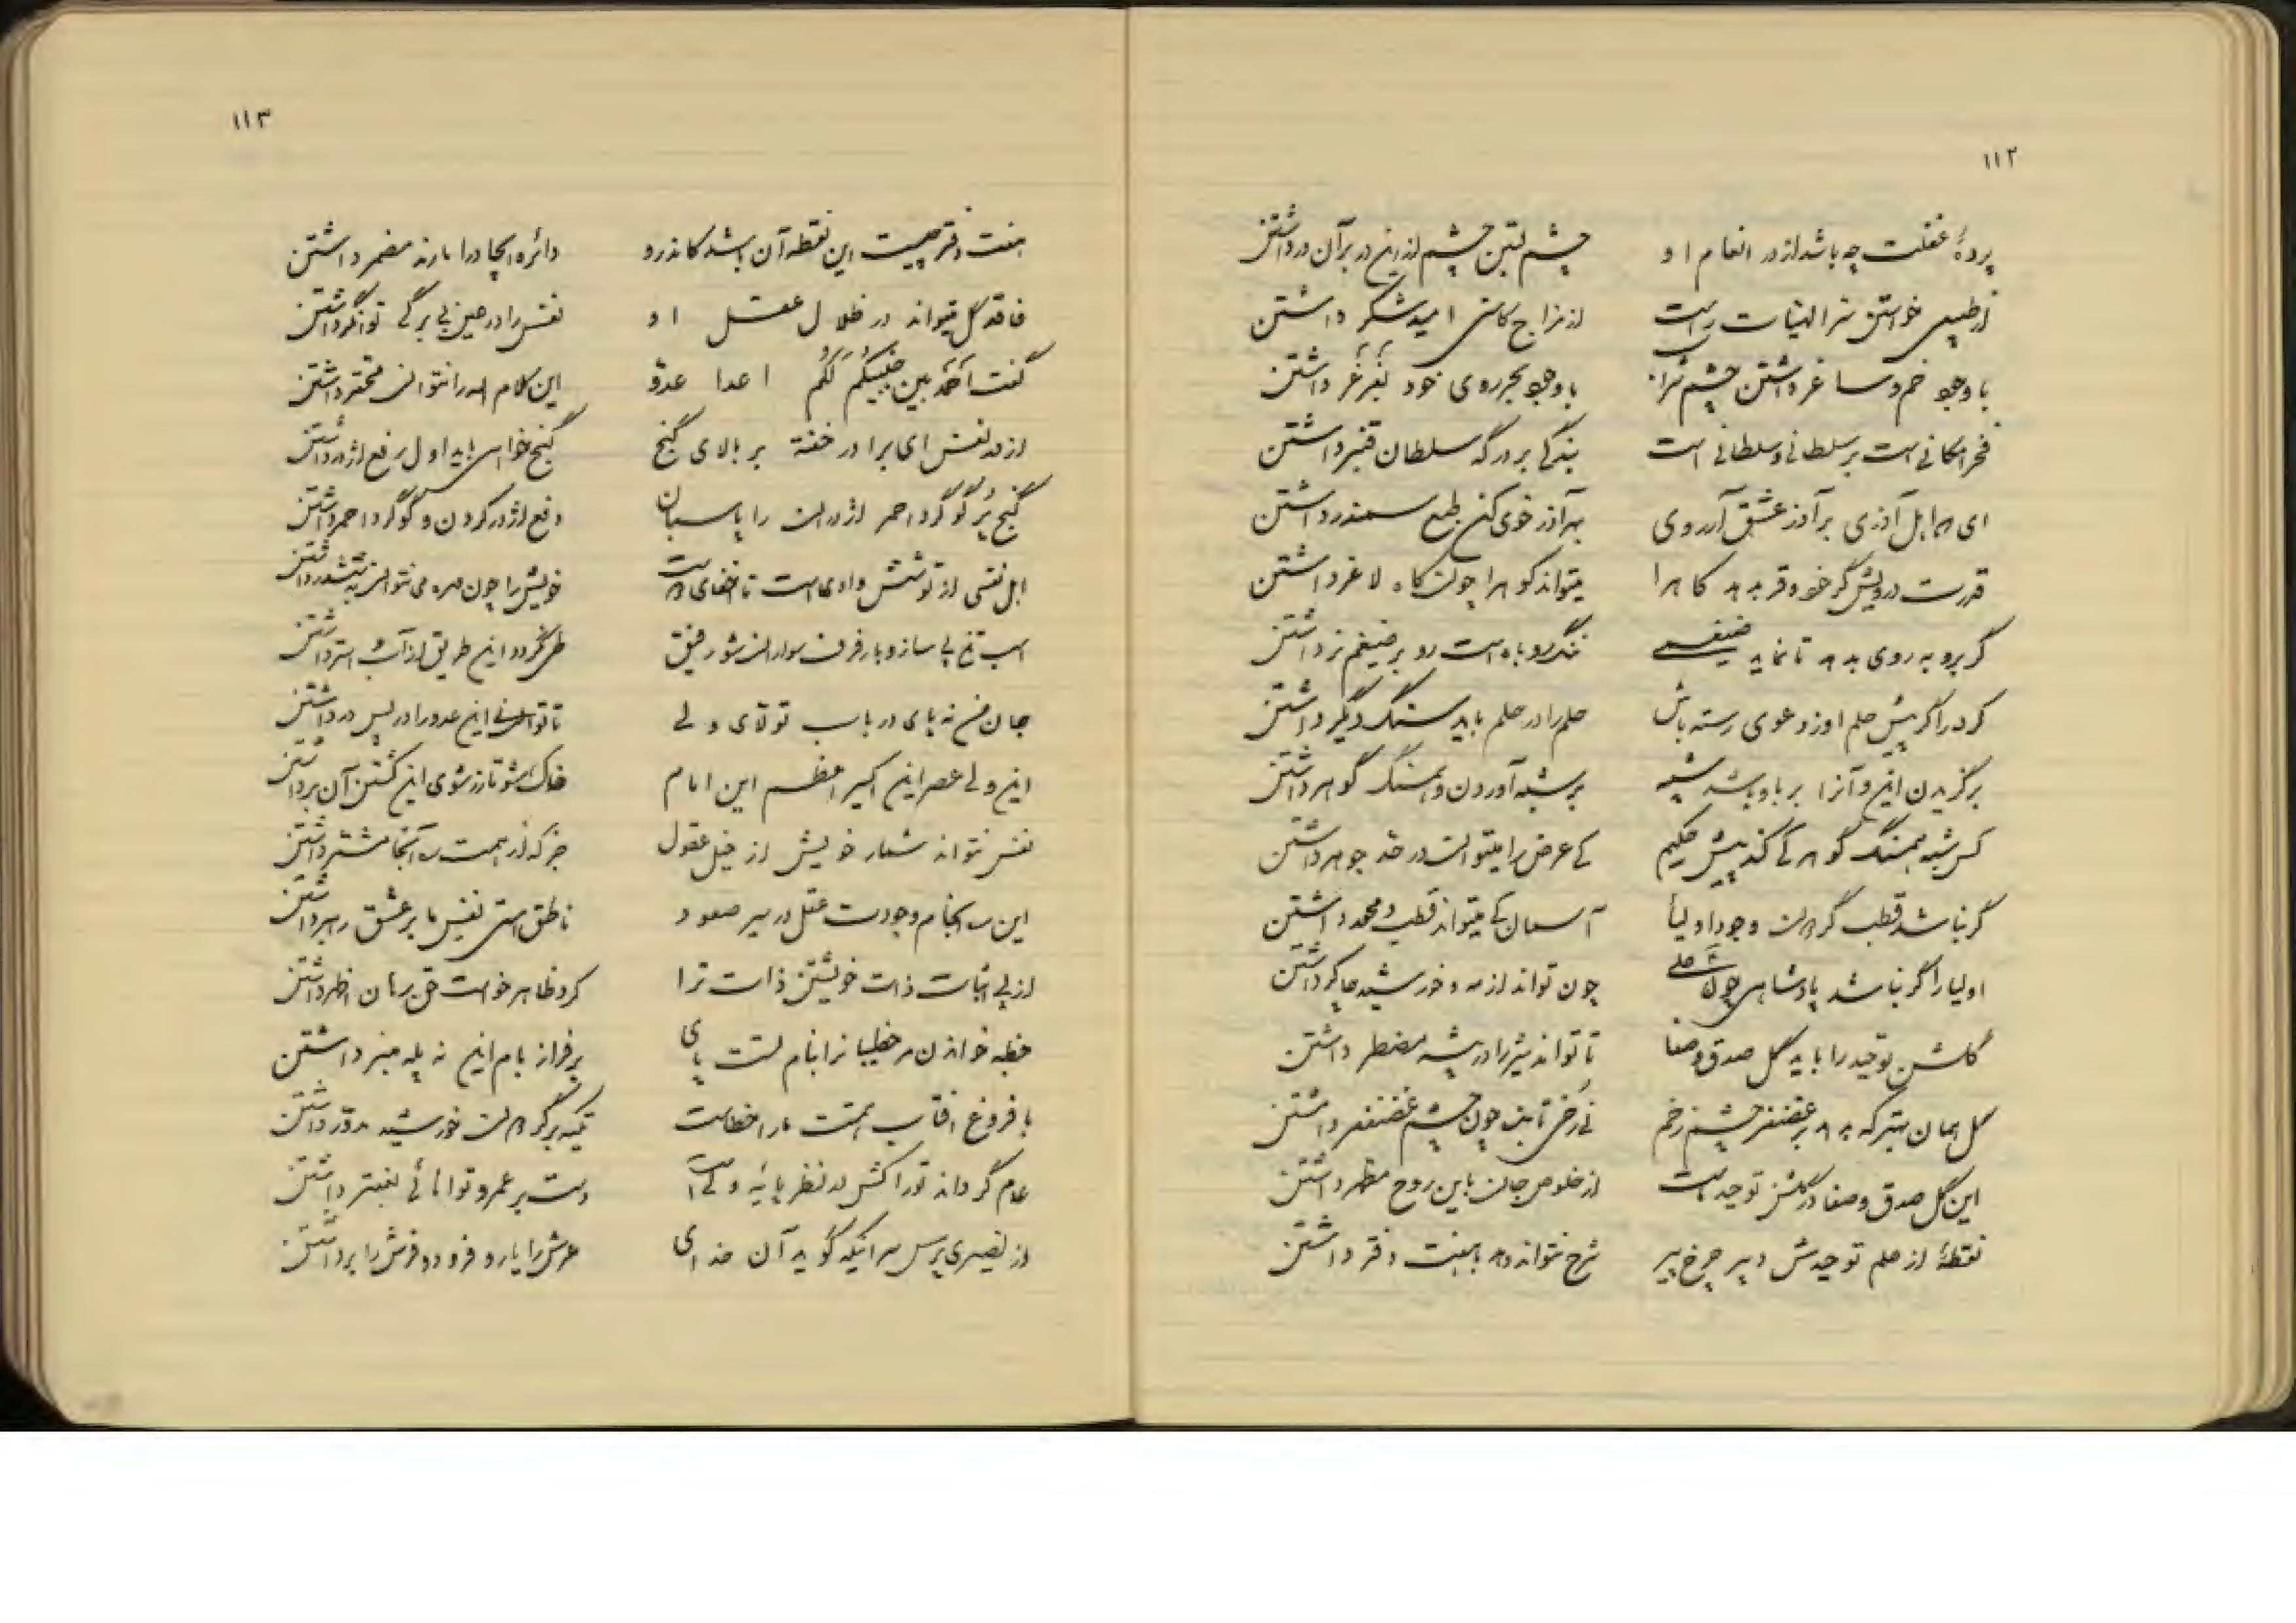 ۱۱۲
پردهٔ غفلت چه باشد از در انعام او چشم بستن چشم ازین در بر آن در داشتن
از طبیعی خواستن سر الهیات راست از مزاج کاسنی امید شکر داشتن
با وجود خم و ساغر داشتن چشم شراب با وجود بحر روی خود بغرغر داشتن
فخر امکانی است بر سلطانی و سلطانی است بندگی بر درگه سلطان قنبر داشتن
ای اهل آذری بر آذر عشق آر روی بهر آذر خوی کن طبع سمندر داشتن
قدرت درویش گر خود وقر بدهد کاه را میتواند کوه را چون کاه لاغر داشتن
گر برو به روی بدهد تا نماید ضیغمی ننگ روباه است رو بر ضیغم نر داشتن
کرد را گر پیش حلم او ز دعوی رسته باش حلم را در حلم باید سنگ دیگر داشتن
برگزیدن این و آنرا بر باو باشد شبیه بر شبه آوردن و همسنگ گوهر داشتن
کس شبه همسنگ گوهر کی کند پیش حکیم کی عرض را میتوان در حد جوهر داشتن
گر نباشد قطب گردان وجود اولیا آسمان کی میتواند قطب و محور داشتن
اولیا را گر نباشد پادشاهی چون علی چون تواند از مه و خورشید چاکر داشتن
گلشن توحید را باید گل صدق و صفا تا تواند شیر را در بیشه مضطر داشتن
گل همان بهتر که بدهد بر غضنفر چشم زخم نی رخی تابنده چون چشم غضنفر داشتن
این گل صدق و صفا در گلشن توحید است از خلوص جان باین روح مطهر داشتن
نقطهٔ از علم توحیدش دبیر چرخ پیر شرح نتواند دهد با هفت دفتر داشتن
۱۱۳
هفت دفتر چیست این نقطه آن باشد کاندرو دائره ایجاد را یارند مضمر داشتن
فاقد کل میتواند در ظلال عقل او نفس را در عین بی برگی توانگر داشتن
گفت احمد بین جنبیکم لکم اعدا عدو این کلام را نتوان محقر داشتن
اژدر نفس ای برادر خفته بر بالای گنج گنج خواهی باید اول رفع اژدر داشتن
گنج پر گوگرد احمر اژدهان را پاسبان دفع اژدر کردن و گوگرد احمر داشتن
اهل نفسی از تو شش وادی است تا اخفای خویش را چون مهره می نتوان بششدر داشتن
اسب تیغ پی ساز و بار فرق سواران شو رفیق طی نگردد این طریق از آب استر داشتن
جان من نه پای در باب تولای ولی تا توانی این عدو را در پس در داشتن
این ولی عصر این اکسیر اعظم این امام خاک شو تا زر شوی این کشتن آن برداشتن
نفس نتواند شعار خویش از خیل عقول جز که از همت سر آنجا مشتهر داشتن
این سرانجام وجودست عقل در سیر صعود ناطق استی نفس ما بر عشق رهبر داشتن
از پی اثبات ذات خویشتن ذات ترا کرد ظاهر خواست حق برهان اظهر داشتن
خطبه خواندن مر خطیبانرا بنام تست پای بر فراز بام این نه پله منبر داشتن
با فروغ آفتاب همتت ما را خطاست تکیه بر گردان خورشید مدور داشتن
عام گرداند تو را کش در نظر پایه ولی است دست بر عمر و توانائی بعنتر داشتن
از نصیری پرس سر اینکه گوید آن خدای عرش را یارد فرود و فرش را بر داشتن